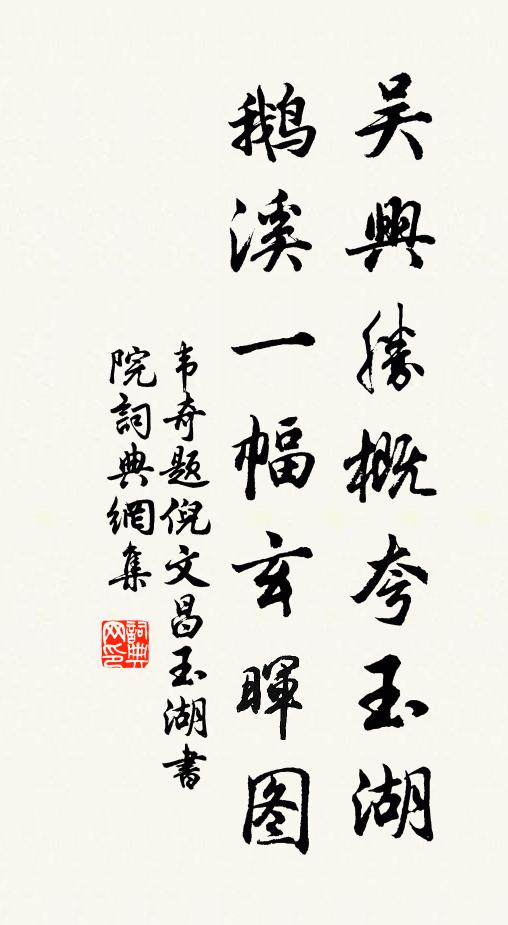 吴興勝概夸玉湖
鹅溪一幅玄暉图
韦奇題倪文昌玉湖書
院詞典網集
詞典
网印